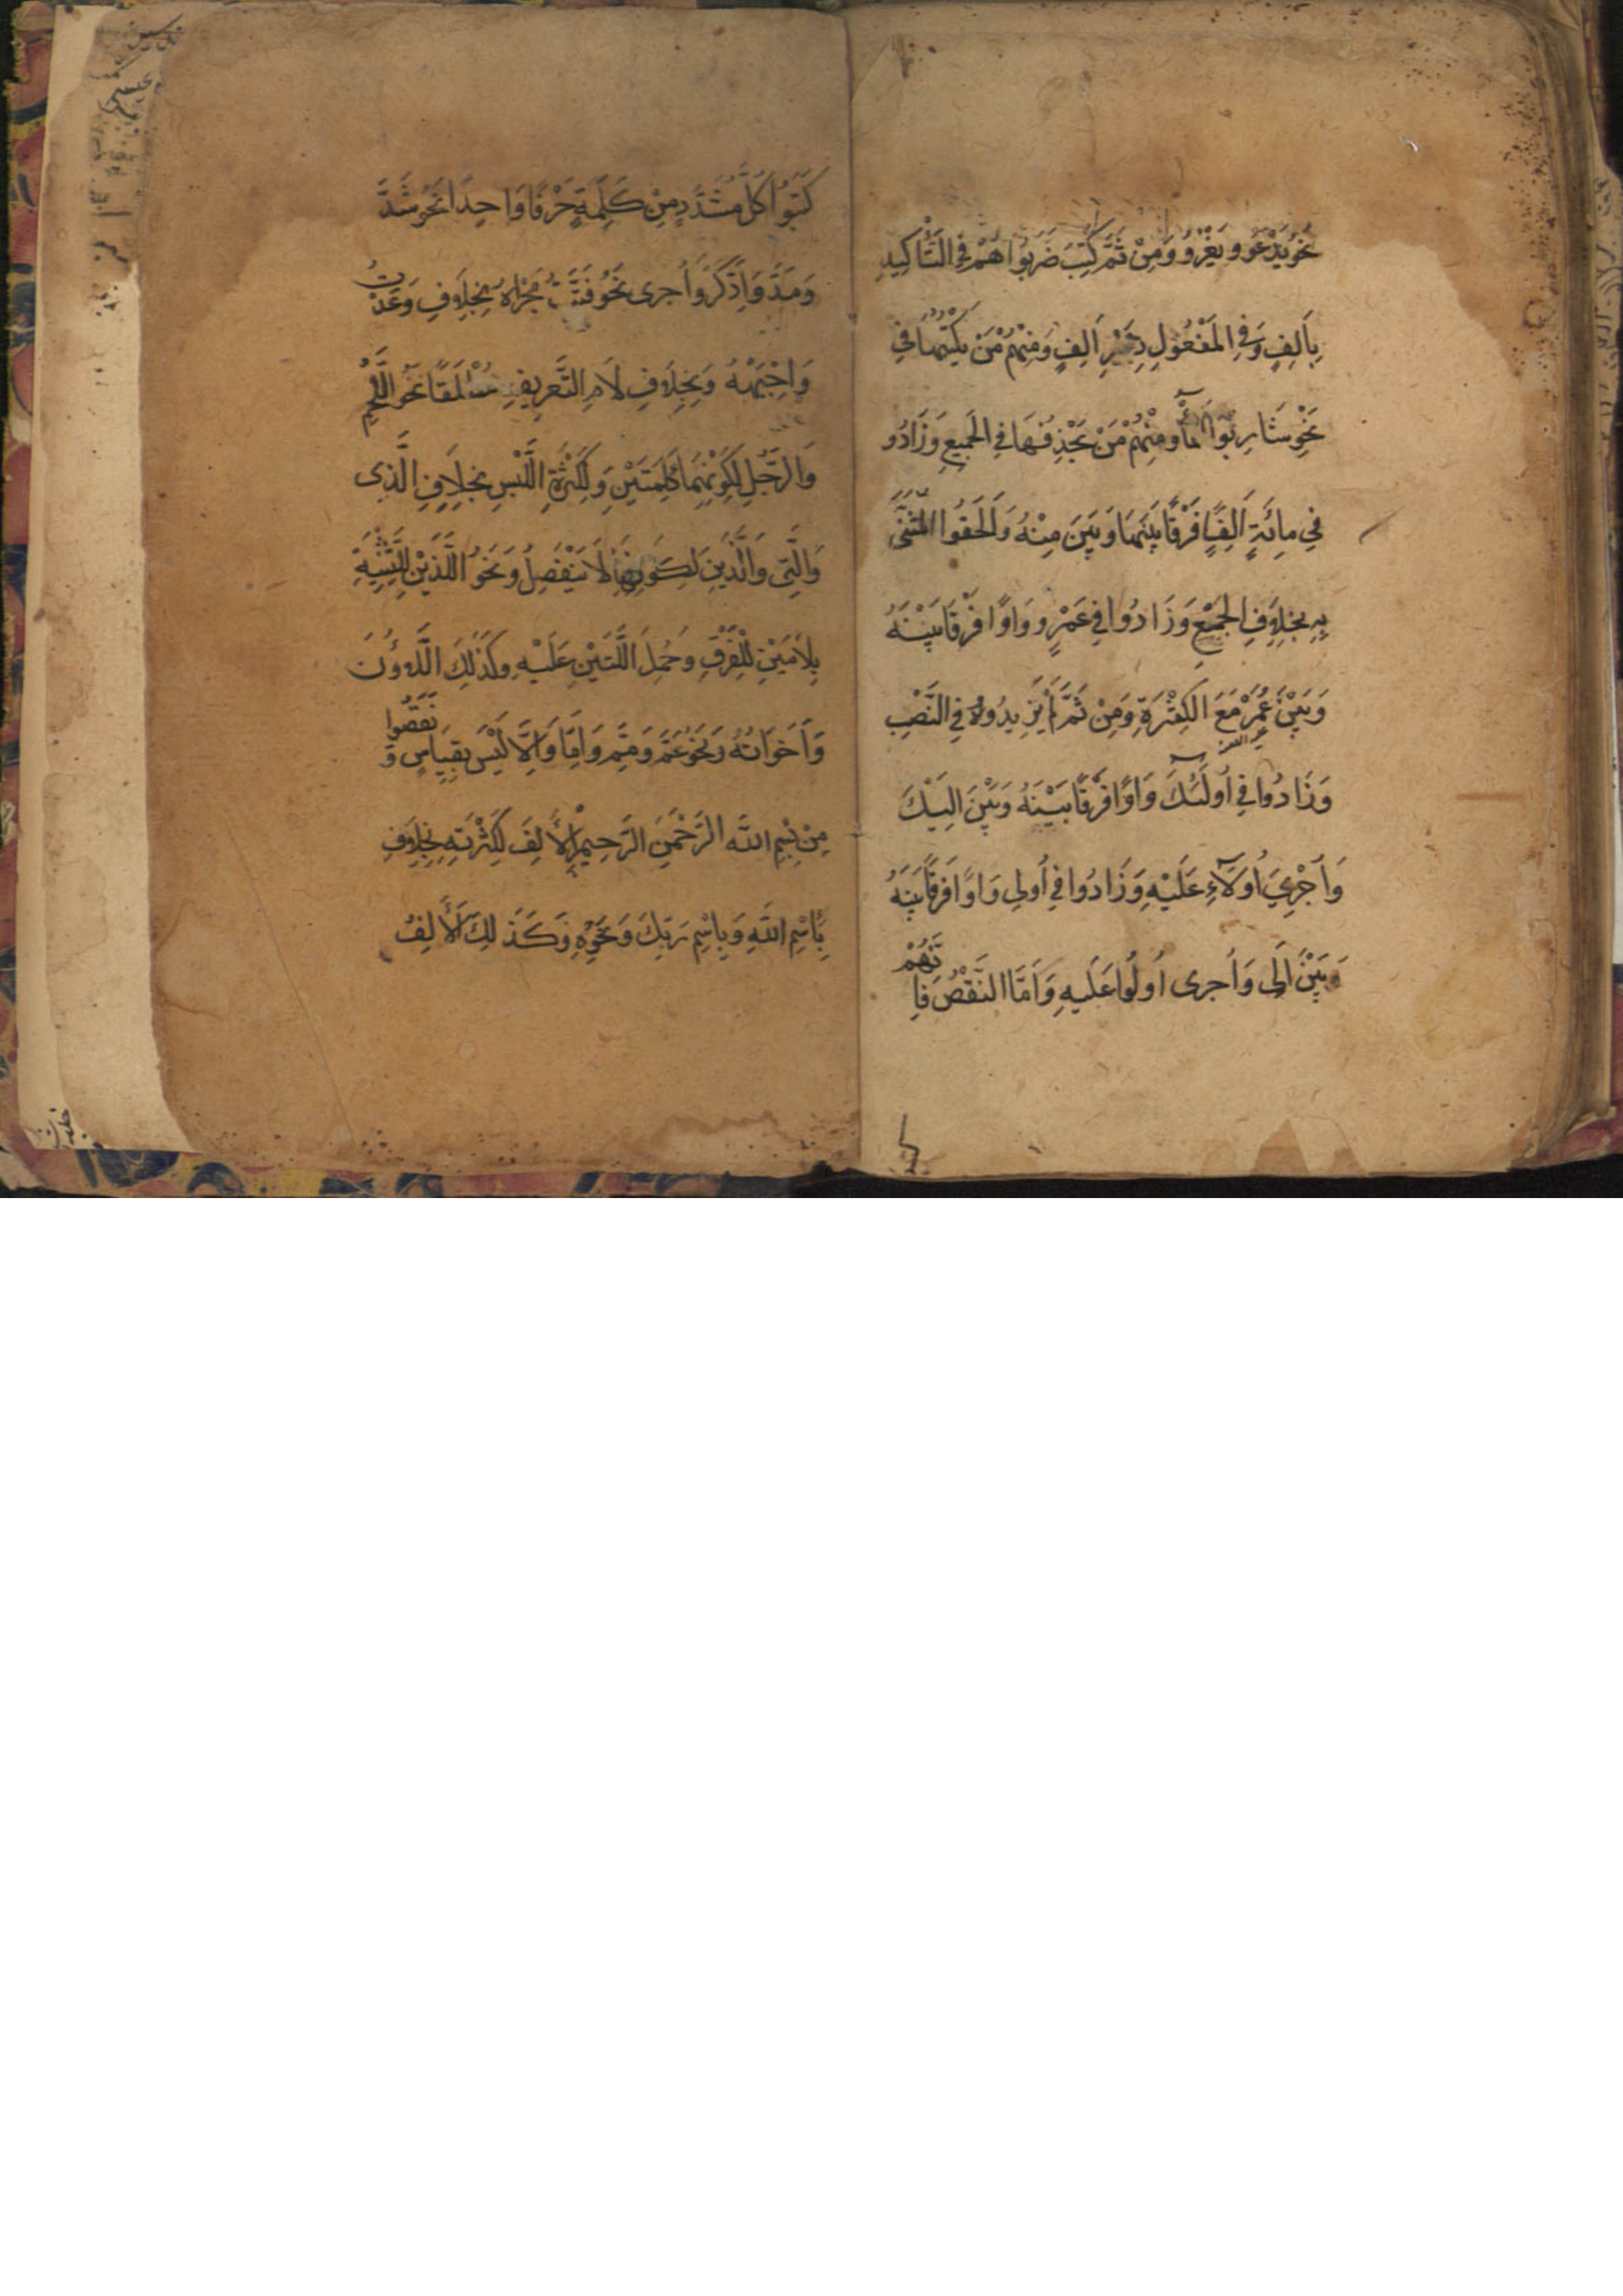 نَحْوُ يَدْعُو و يَغْزُو وَمِنْ ثَمَّ كُتِبَ ضَرَبُوا هُمْ فِي التَّأْكِيدِ
بِاَلِفٍ وَفِي المَفْعُولِ بِغَيْرِ اَلِفٍ وَمِنْهُمْ مَنْ يَكْتُبُهَا فِي
نَحْوِ شَارِبُوا المَاءِ وَمِنْهُمْ مَنْ يَحْذِفُهَا فِي الجَمِيعِ وَزَادُو
فِي مِائَةٍ اَلِفًا فَرْقًا بَيْنَهَا وَبَيْنَ مِنْهُ وَاَلْحَقُوا المُثَنَّى
بِهِ بِخِلَافِ الجَمْعِ وَزَادُوا فِي عَمْرٍو وَاوًا فَرْقًا بَيْنَهُ
وَبَيْنَ عُمَرَ مَعَ الكِثْرَةِ وَمِنْ ثَمَّ لَمْ يَزِيدُوهُ فِي النَّصْبِ
وَزَادُوا فِي اُولَئِكَ وَاوًا فَرْقًا بَيْنَهُ وَبَيْنَ اِلَيْكَ
وَاُجْرِيَ اُولَاءِ عَلَيْهِ وَزَادُوا فِي اُولِي وَاوًا فَرْقًا بَيْنَهُ
وَبَيْنَ اِلَى وَاُجرى اُولُوا عَلَيهِ وَاَمَّا النَّقْصُ فَاِنَّهُمْ
كَتَبُوا كُلَّ مُشَدَّدٍ مِنْ كَلِمَةٍ حَرْفًا وَاحِدًا نَحْوُ شَدَّ
وَمَدَّ وَادَّكَرَ وَاُجرى نَحْوُ فَتَتُّ مَجْرَاهُ بِخِلَافِ وَعَدْتُ
وَاجْبَهْهُ وَبِخِلَافِ لَامِ التَّعْرِيفِ مُطْلَقًا نَحْوُ اللَّحْمِ
وَالرَّجُلِ لِكَوْنِهِمَا كَلِمَتَيْنِ وَلِكَثْرَةِ اللَّبْسِ بِخِلَافِ الَّذِى
وَالَّتِى وَالَّذِينَ لِكَوْنِهَا لَا يَنْفَصِلُ وَنَحْوُ اللَّذَيْنِ لِلتَّثْنِيَةِ
بِلَامَيْنِ لِلْفَرْقِ وَحُمِلَ اللَّتَيْنِ عَلَيْهِ وَكَذَلِكَ اللَّاؤُنَ
وَاَخَوَاتُهُ وَنَحْوُ عَمَّ وَمِمَّ وَاِمَّا وَاِلَّا لَيْسَ بِقِيَاسٍ وَنَقَصُوا
مِنْ بِسْمِ اللَّهِ الرَّحْمَنِ الرَّحِيْمِ الْاَلِفَ لِكَثْرَتِهِ بِخِلَافِ
بِاسْمِ اللَّهِ وَبِاسْمِ رَبِّكَ وَنَحْوِهِ وَكَذَلِكَ الْاَلِفُ